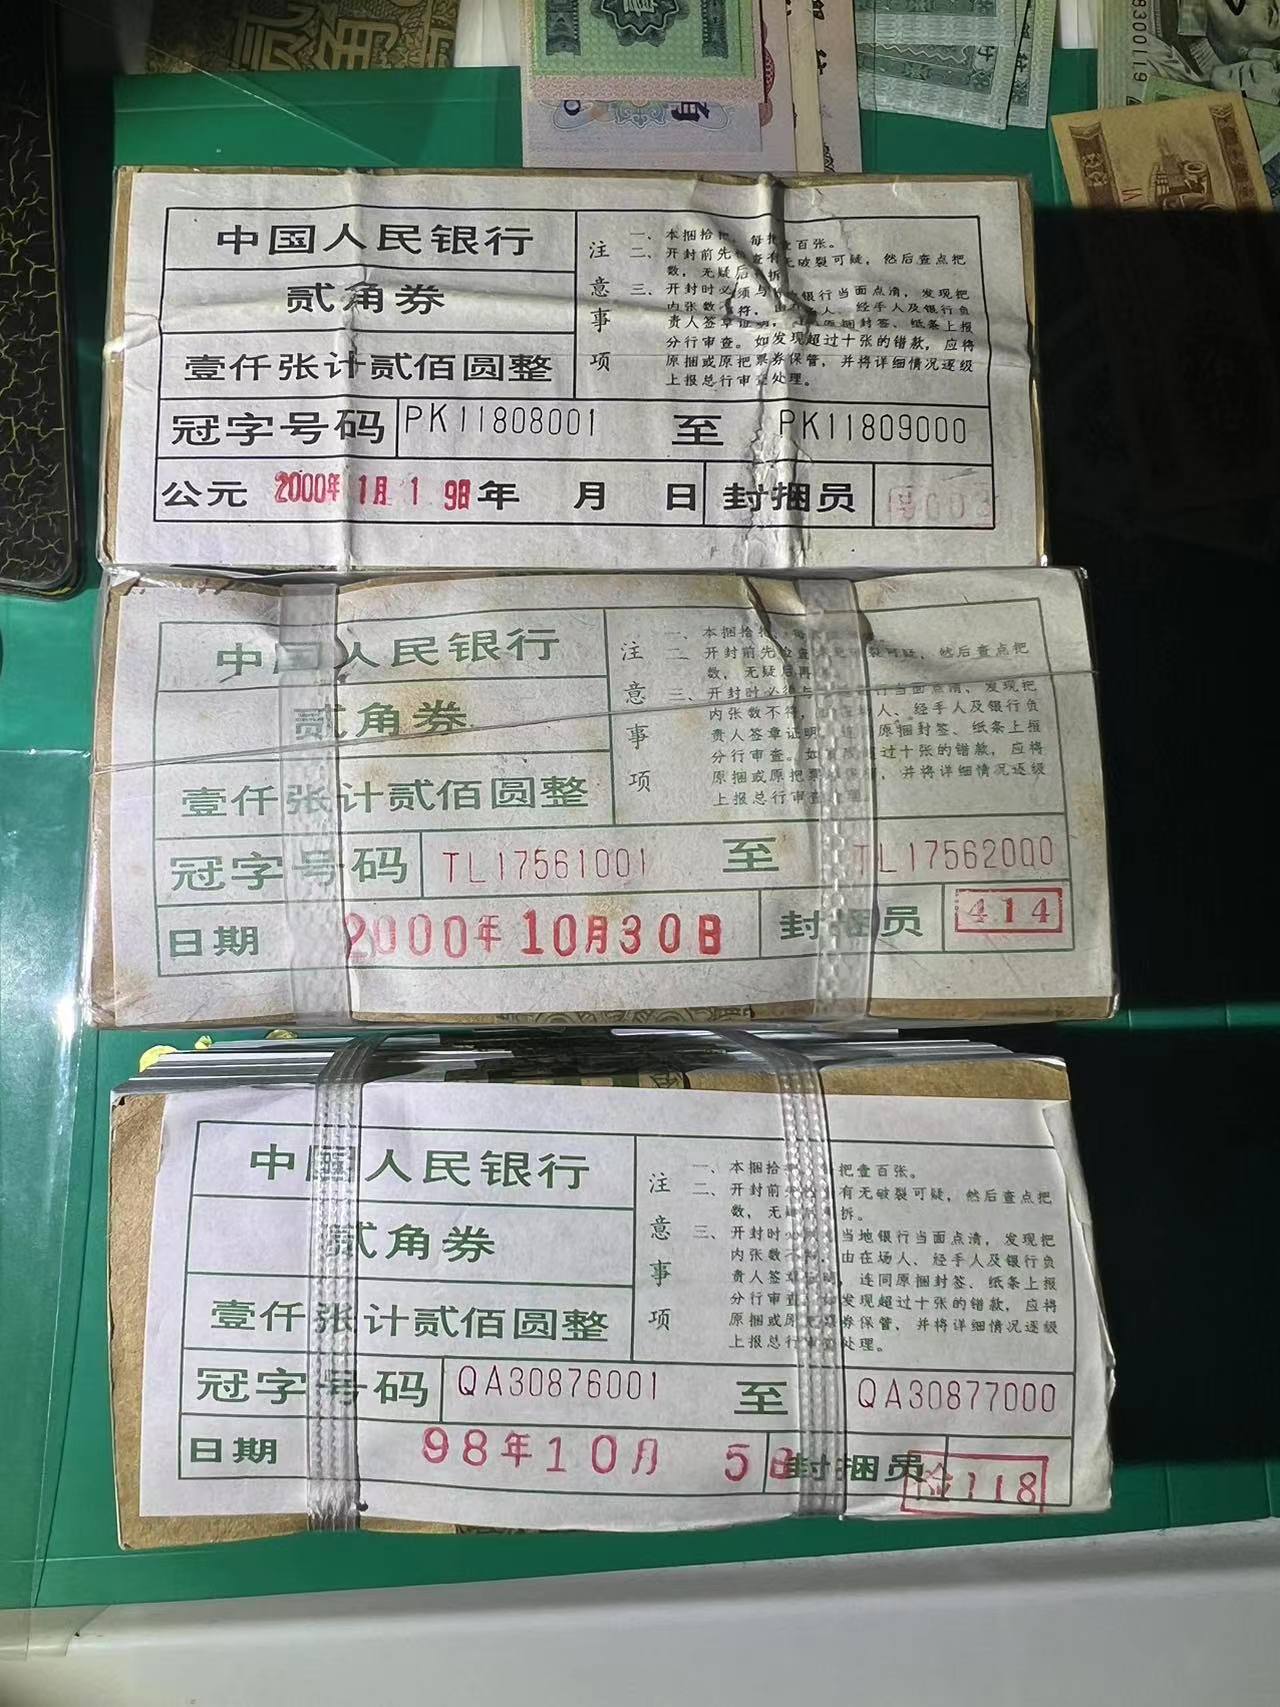 贰角
83000119
中国人民银行
贰角券
壹仟张计贰佰圆整
注意事项
一、本捆拾把、每把壹百张。
二、开封前先 查有无破裂可疑，然后查点把
数，无疑后 拆
三、开封时必须与 地银行当面点清，发现把
内张数不符，由在 人、经手人及银行负
责人签章证明， 原捆封签、纸条上报
分行审查。如发现超过十张的错款，应将
原捆或原把票券保管，并将详细情况逐级
上报总行审查处理。
冠字号码 PK11808001 至 PK11809000
公元 2000年 1月 1 9日 年 月 日 封捆员
中国人民银行
贰角券
壹仟张计贰佰圆整
注意事项
一、本捆拾把、每
二、开封前先检查 破裂可疑，然后查点把
数，无疑后再
三、开封时必须与 行当面点清，发现把
内张数不符，由在 人、经手人及银行负
责人签章证明，连 原捆封签、纸条上报
分行审查。如发 超过十张的错款，应将
原捆或原把票 保 ，并将详细情况逐级
上报总行审查 理。
冠字号码 TL17561001 至 TL17562000
日期 2000年10月30日 封捆员 414
中国人民银行
贰角券
壹仟张计贰佰圆整
注意事项
一、本捆拾 把壹百张。
二、开封前 有无破裂可疑，然后查点把
数，无 拆。
三、开封时 当地银行当面点清，发现把
内张数 ，由在场人、经手人及银行负
责人签章 明，连同原捆封签、纸条上报
分行审查 如发现超过十张的错款，应将
原捆或原 票券保管，并将详细情况逐级
上报总行审查处理。
冠字号码 QA30876001 至 QA30877000
日期 98年10月 5日 封捆员 检118